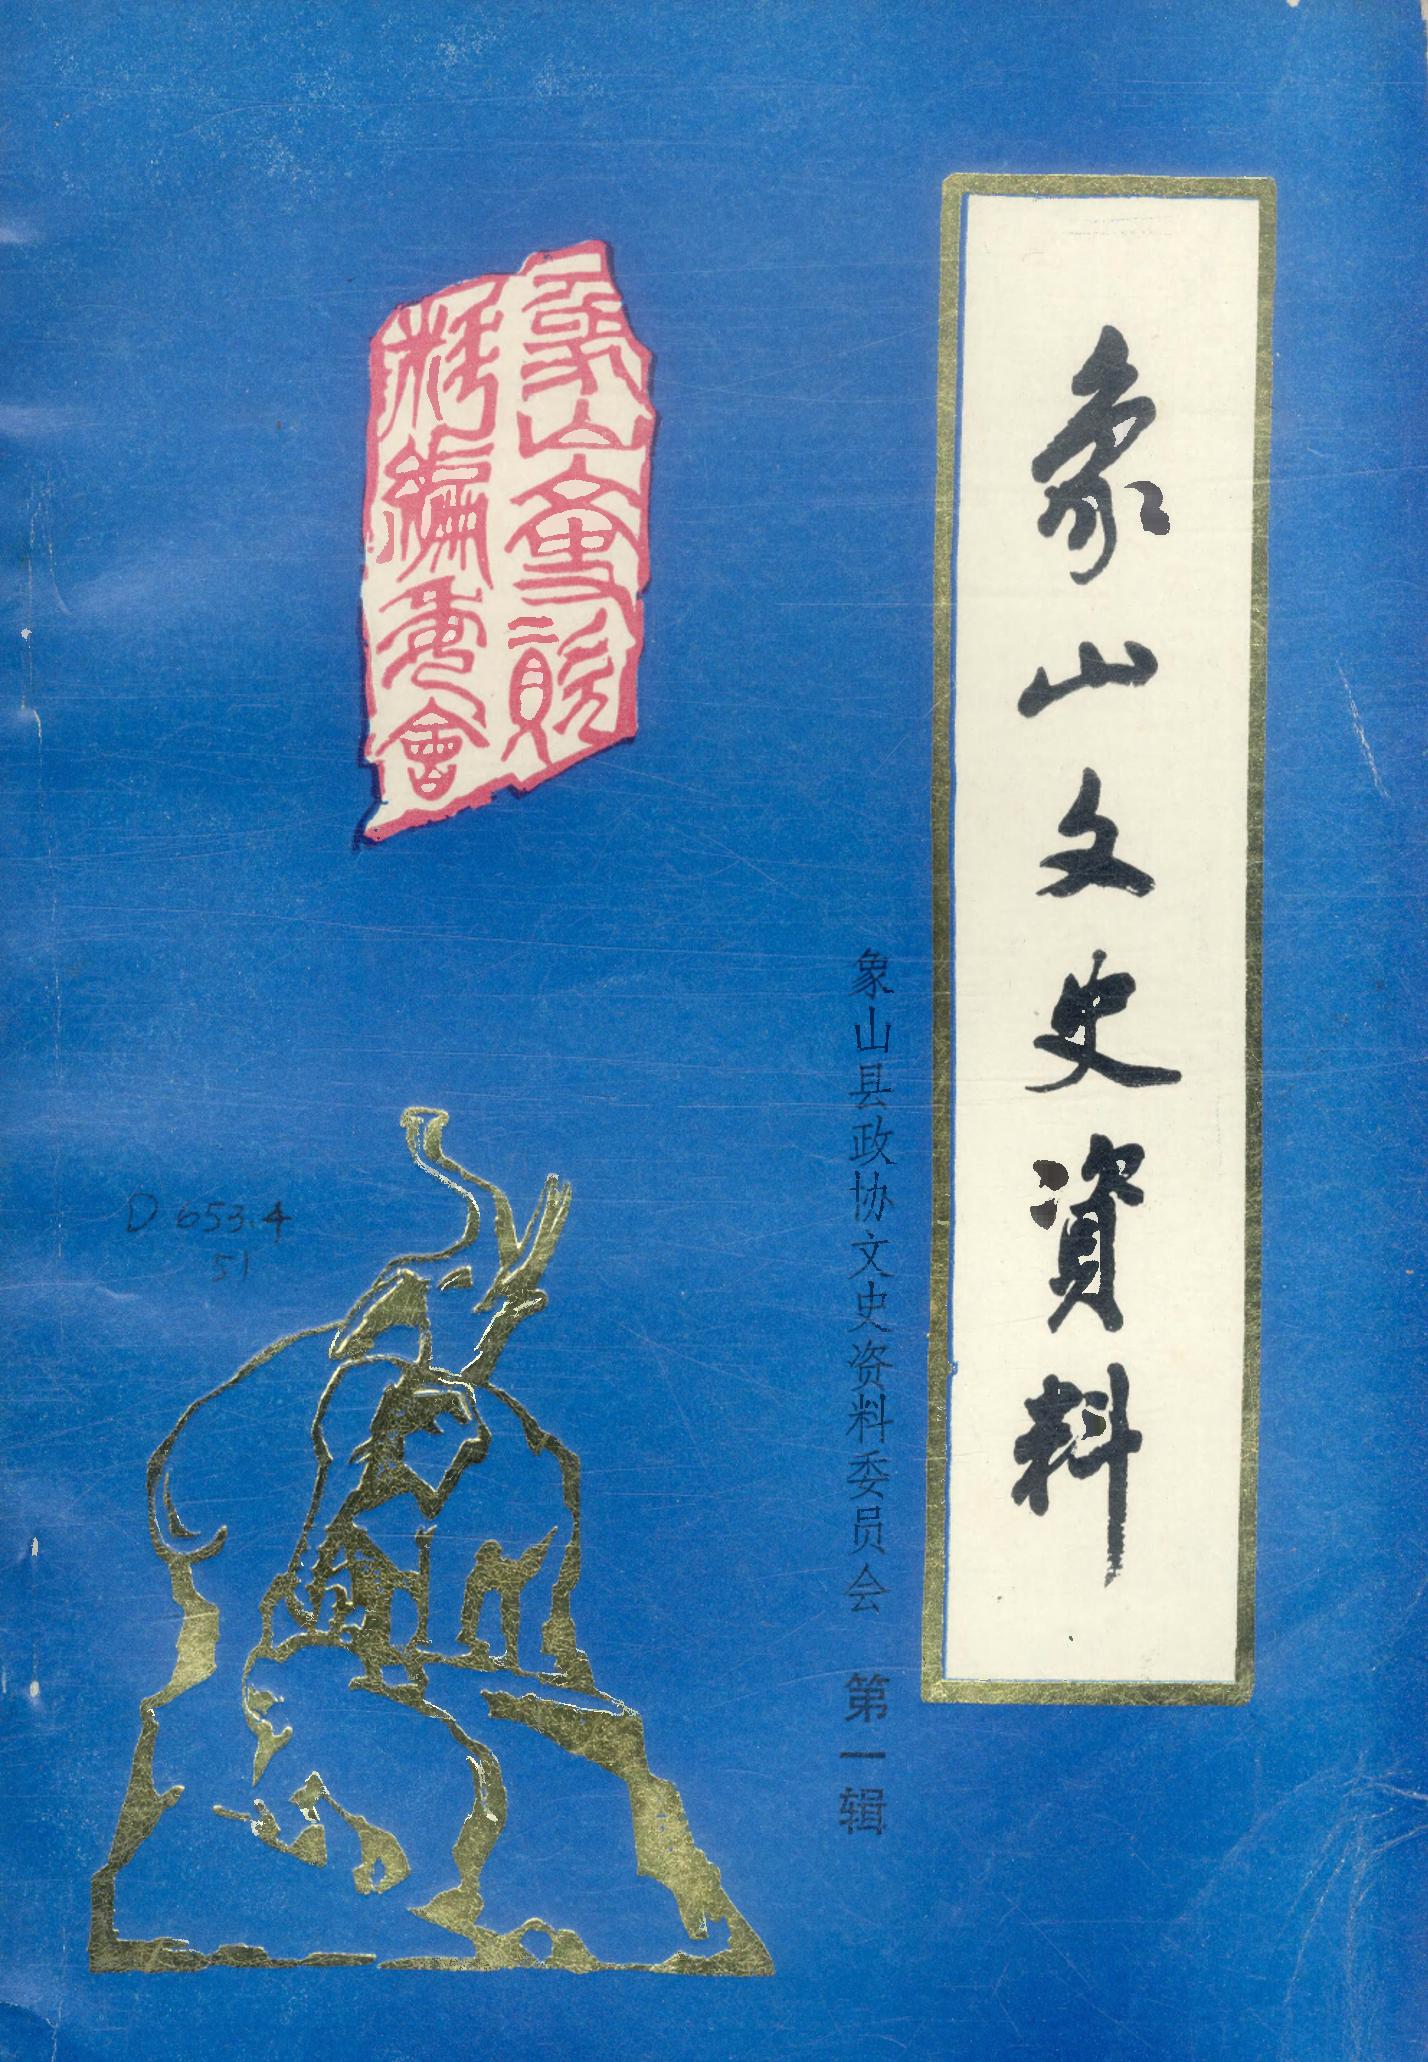 象山文史資料
象山县政协文史资料委员会 第一辑
象山文史資
料編委會
D 653.4
51